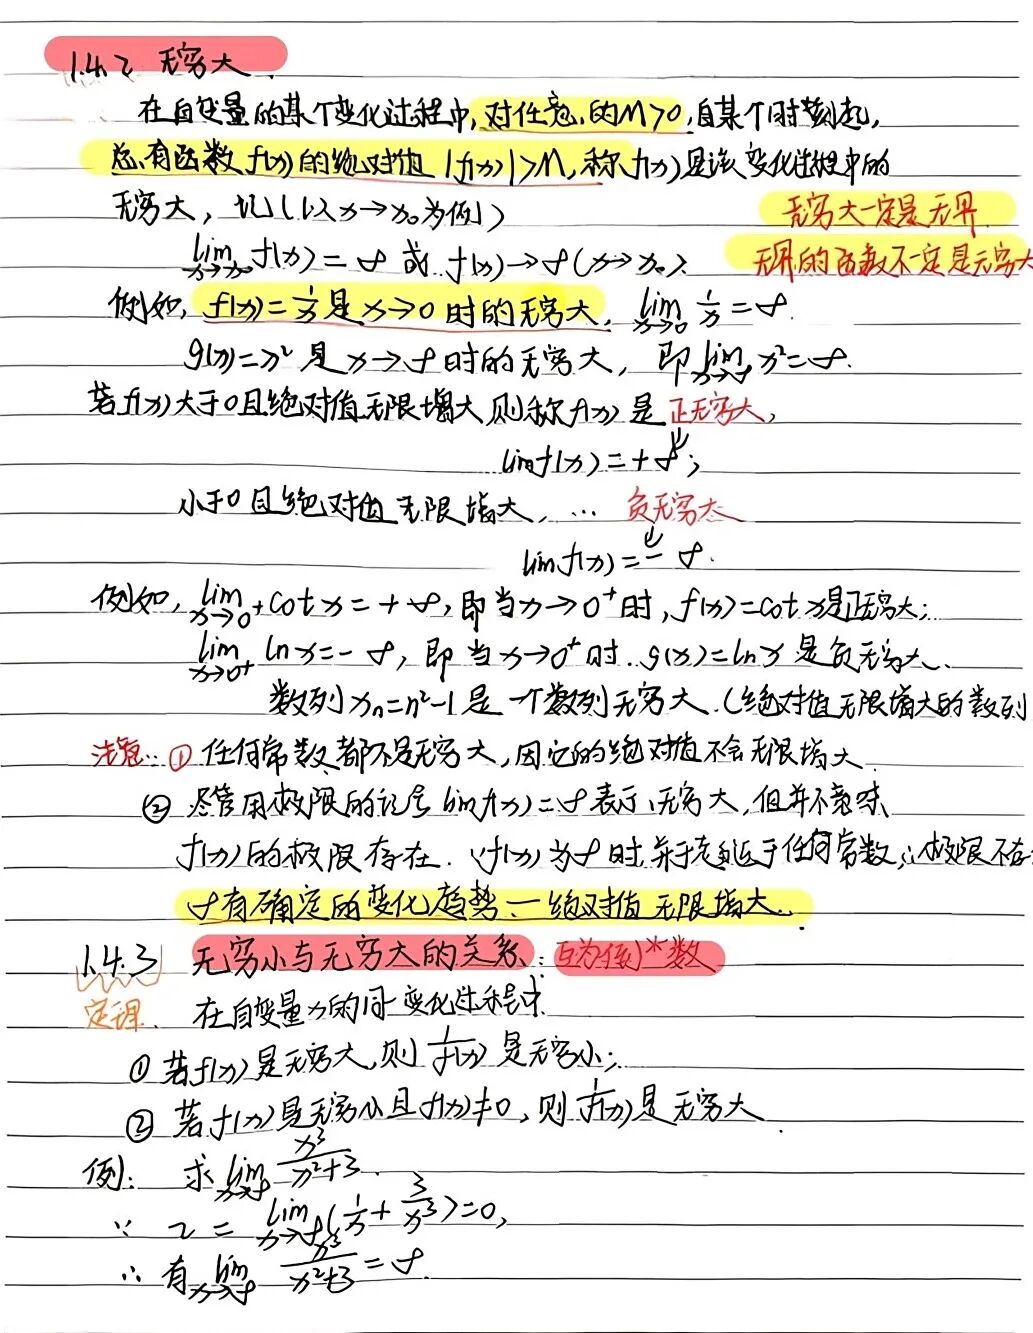 1.4.2 无穷大.
在自变量的某个变化过程中,对任意的M>0,自某个时刻起,
总有函数f(x)的绝对值|f(x)|>M,称f(x)是该变化过程中的
无穷大,记(以x→x₀为例)
无穷大一定是无界
lim x→x₀ f(x)=∞ 或 f(x)→∞(x→x₀).
无界的函数不一定是无穷大
例如, f(x)=1/x是x→0时的无穷大, lim x→0 1/x=∞.
g(x)=x²是x→∞时的无穷大, 即lim x→∞ x²=∞.
若f(x)大于0且绝对值无限增大,则称f(x)是正无穷大,
limf(x)=+∞;
小于0且绝对值无限增大, … 负无穷大
limf(x)=-∞.
例如, lim x→0⁺ cotx=+∞,即当x→0⁺时,f(x)=cotx是正无穷大;
lim x→0⁺ lnx=-∞, 即当x→0⁺时.g(x)=lnx是负无穷大.
数列xₙ=n²-1是一个数列无穷大.(绝对值无限增大的数列
注意: ①任何常数都不是无穷大,因它的绝对值不会无限增大.
②尽管用极限的记号limf(x)=∞表示无穷大,但并不意味
f(x)的极限存在. ∵f(x)为∞时,并于老师近于任何常数,∴极限不存
∞有确定的变化趋势—绝对值无限增大.
1.4.3 无穷小与无穷大的关系: 互为倒*数
定理. 在自变量x的同一变化过程中.
①若f(x)是无穷大,则1/f(x)是无穷小;
②若f(x)是无穷小且f(x)≠0,则1/f(x)是无穷大
例: 求lim x→∞ x³/x²+3.
∵ 2=lim x→∞(1/x+3/x³)=0,
∴ 有lim x→∞ x³/x²+3=∞.